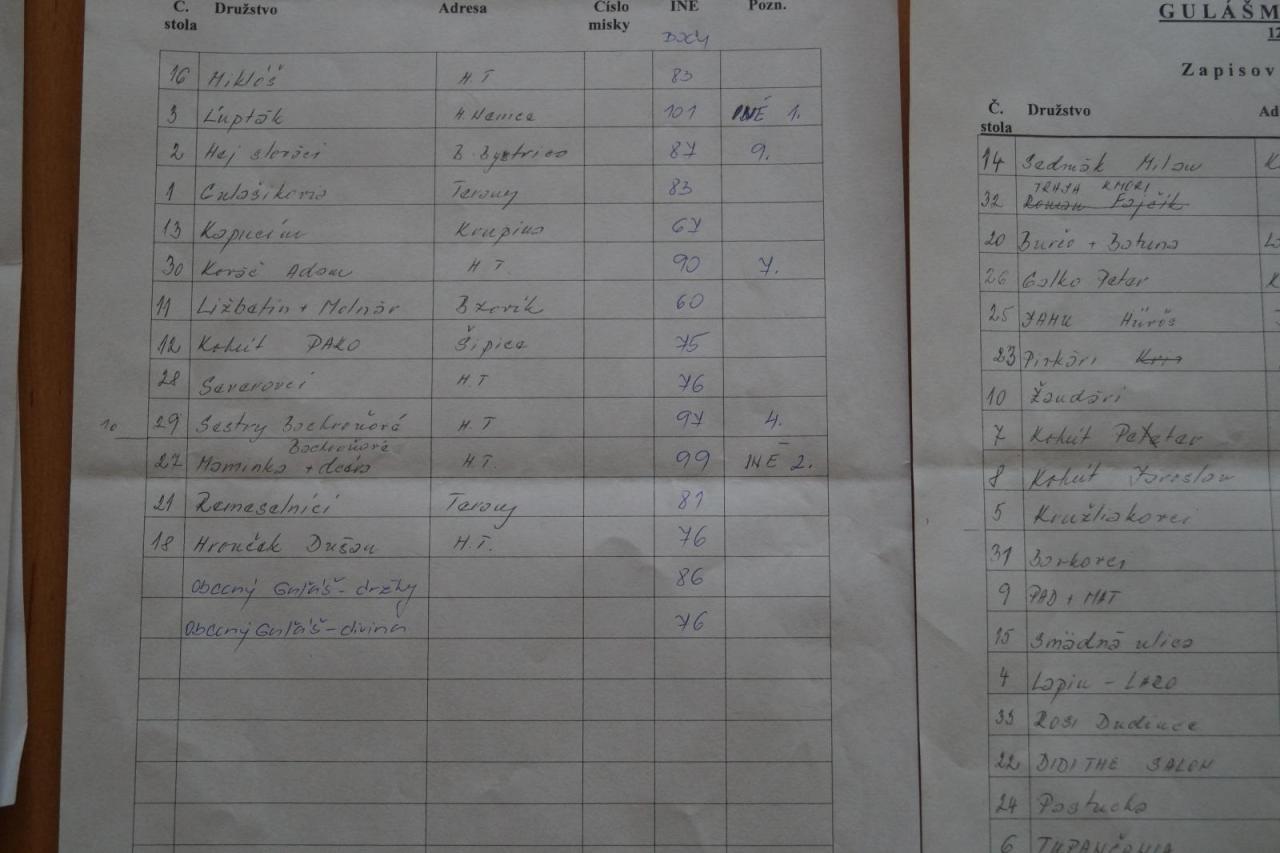 Č. stola Družstvo Adresa Číslo misky INÉ Pozn.
BODY
16 Miklóš H.T 83
3 Ľupták H. Nemce 101 INÉ 1.
2 Hej slováci B. Bystrica 87 9.
1 Gulášikovo Terany 83
13 Kapucíni Krupina 67
30 Kováč Adam H T. 90 7.
11 Ližbetin + Molnár Bzovík 60
12 Kohút PAKO Šipice 75
28 Severovci H.T 76
10 29 Sestry Bochroňová H. T 97 4.
Bochroňová
27 Maminka + H.T. 99 INÉ 2.
21 Remeselníci Terany 81
18 Hronček Dušan H.T. 76
Obecný Guľáš - držky 86
Obecný Guľáš - divina 76
GULÁŠM
12
Zapisov
Č. stola Družstvo Ad
14 Sedmák Milan K
TRAJA KMOTRI
32 Roman Fajčík
20 Burič + Batuna
26 Galko Peter K
25 JAHU Hüröš
23 Pirkári
10 Žandári
7 Kohút Peter
8 Kohút Jaroslav
5 Kružliakovci
31 Borkovci
9 PAD + MAT
15 Smädná ulica
4 Lapin - LACO
33 ROSI Dudince
22 DIDI THE SALON
24 Pastucha
6 ŤAPANČANIA